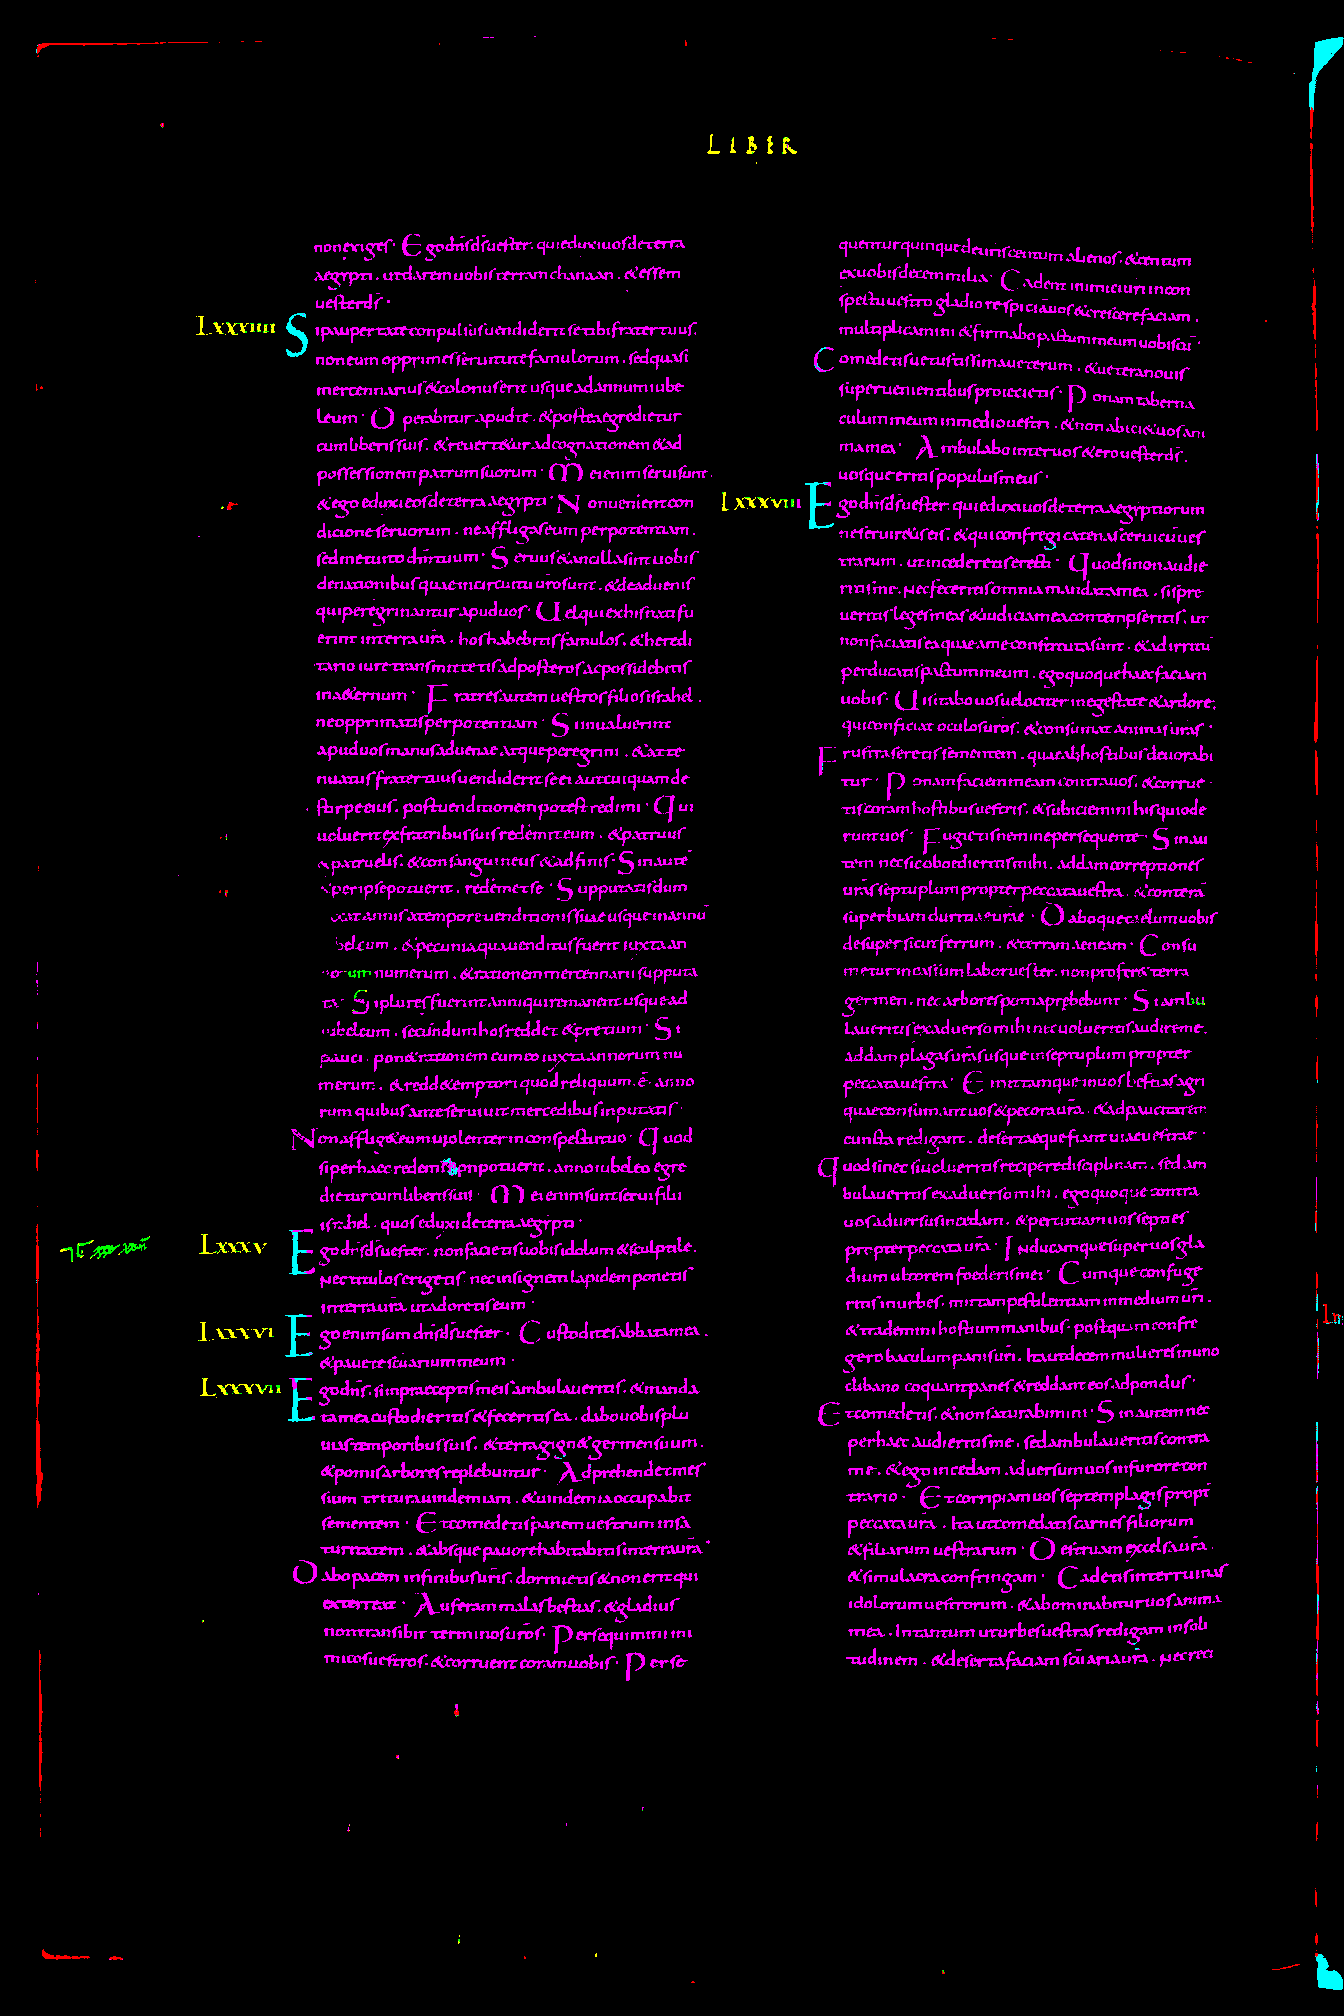 LIBER
non exiges · Ego dn̄s d̄s uester · qui eduxi uos de terra
aegypti · ut darem uobis terram chanaan · & essem
uester d̄s ·
LXXXIIII Si paupertate conpulsus uendiderit se tibi frater tuus ·
non eum opprimes seruitute famulorum · sed quasi
mercennarius & colonus erit usque ad annum iube
leum · Operabitur apud te · & postea egredietur
cum liberis suis · & reuertetur ad cognationem & ad
possessionem patrum suorum · Mei enim serui sunt ·
& ego eduxi eos de terra aegypti · Non uenient con
dicione seruorum · ne affligas eum per potentiam ·
sed metuito dn̄m tuum · Seruus & ancilla sint uobis
de nationibus quae in circuitu ur̄o sunt · & de aduenis
qui peregrinantur apud uos · Uel qui ex his nati fu
erint in terra ur̄a · hos habebitis famulos · & heredi
tario iure transmittetis ad posteros ac possidebitis
in aeternum · Fratres autem uestros filios israhel ·
ne opprimatis per potentiam · Si inualuerint
apud uos manus aduenae atque peregrini · & atte
nuatus frater tuus uendiderit se ei aut cuiquam de
stirpe eius · post uenditionem potest redimi · Qui
uoluerit ex fratribus suis redemit eum · & patruus
& patruelis · & consanguineus & adfinis · Sin aute
& per ipse potuerit · redemet se · Supputatis dum
taxat annis a tempore uenditionis suae usque in annu
belcum · & pecunia qua uenditus fuerit iuxta an
norum numerum · & rationem mercennarii supputa
ta · Si plures fuerint anni qui remanent usque ad
iubeleum · secundum hos reddet & pretium · Si
pauci · ponet rationem cum eo iuxta annorum nu
merum · & reddet emptori quod reliquum · ē · anno
rum quibus ante seruiuit mercedibus inputatis ·
Non affliget eum uiolenter in conspectu tuo · Quod
si per haec redemi non potuerit · anno iubeleo egre
dietur cum liberis suis · Mei enim sunt serui filii
israhel · quos eduxi de terra aegypti ·
LXXXV Ego dn̄s d̄s uester · non facietis uobis idolum & sculptile ·
Nec titulos erigetis · nec insignem lapidem ponetis
in terra ur̄a ut adoretis eum ·
LXXXVI Ego enim sum dn̄s d̄s uester · Custodite sabbata mea ·
& pauete ad sc̄uarium meum ·
LXXXVII Ego dn̄s · si in praeceptis meis ambulaueritis · & manda
ta mea custodieritis & feceritis ea · dabo uobis plu
uias temporibus suis · & terra gignet germen suum ·
& pomis arbores replebuntur · Adprehendet mes
sium tritura uindemiam · & uindemia occupabit
sementem · Et comedetis panem uestrum in sa
turitatem · & absque pauore habitabitis in terra ur̄a ·
Dabo pacem in finibus uris · dormietis & non erit qui
exterreat · Auferam malas bestias · & gladius
non transibit terminos ur̄os · Persequimini ini
micos uestros · & corruent coram uobis · Perse
quentur quinque de uiris centum alienos · & centum
ex uobis decem milia · Cadent inimici uri in con
spectu uestro gladio respiciā uos & crescere faciam ·
multiplicamini & firmabo pactum meum uobiscū ·
Comedetis uetustissima ueterum · & uetera nouis
superuenientibus proiecietis · Ponam taberna
culum meum in medio uestri · & non abiciet uos ani
ma mea · Ambulabo inter uos & ero uester d̄s ·
uosque eritis populus meus ·
LXXXVIII Ego dn̄s d̄s uester · qui eduxi uos de terra aegyptiorum
ne seruiretis eis · & qui confregi catenas ceruicū ues
trarum · ut incederetis erecti · Quod si non audie
ritis me · Nec feceritis omnia mandata mea · si spre
ueritis leges meas & iudicia mea contempseritis · ut
non faciatis ea quae a me constituta sunt · & ad irritū
perducatis pactum meum · ego quoque haec faciam
uobis · Uisitabo uos uelociter in egestate & ardore ·
qui conficiat oculos uros · & consumat animas uras ·
Frustra seretis sementem · quae ab hostibus deuorabi
tur · Ponam faciem meam contra uos · & corrue ·
tis coram hostibus uestris · & subiciemini his qui ode
runt uos · Fugietis nemine persequente · Sin au
tem nec sic oboedieritis mihi · addam correptiones
ur̄as septuplum propter peccata uestra · & conterā
superbiam duritiae ur̄ae · Daboque caelum uobis
desuper sicut ferrum · & terram aeneam · Consu
metur in casium labor uester · non proferet terra
germen · nec arbores poma prebebunt · Si ambu
laueritis ex aduerso mihi nec uolueritis audire me ·
addam plagas ur̄as usque in septuplum propter
peccata uestra · Emittamque in uos bestias agri
quae consumant uos & pecora ur̄a · & ad paucitatem
cuncta redigant · desertaeque fiant uiae uestrae ·
Quod si nec sic uolueritis recipere disciplinam · sed am
bulaueritis ex aduerso mihi · ego quoque contra
uos aduersus incedam · & percutiam uos septies
propter peccata ur̄a · Inducamque super uos gla
dium ultorem foederis mei · Cumque confuge
ritis in urbes · mittam pestilentiam in medium uri ·
& trademini hostium manibus · postquam confre
gero baculum panis uri · Ita ut decem mulieres in uno
clibano coquant panes & reddant eos ad pondus ·
Et comedetis · & non saturabimini · Sin autem nec
per haec audieritis me · sed ambulaueritis contra
me · & ego incedam · aduersum uos in furore con
trario · Et corripiam uos septem plagis propt̄
peccata ur̄a · Ita ut comedatis carnes filiorum
& filiarum uestrarum · Destruam excelsa ur̄a ·
& simulacra confringam · Cadetis inter ruinas
idolorum uestrorum · & abominabitur uos anima
mea · In tantum ut urbes uestras redigam in soli
tudinem · & deserta faciam sc̄uaria ur̄a · Nec reci